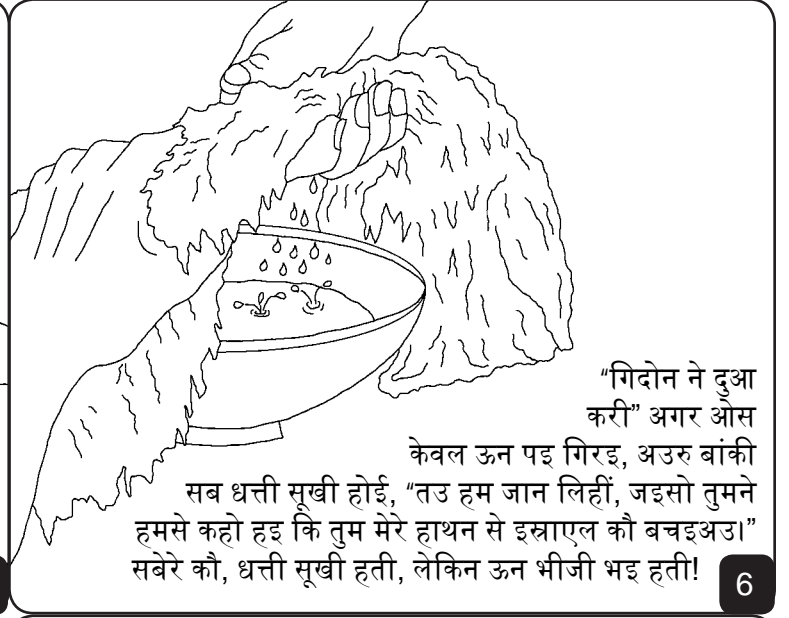 “गिदोन ने दुआ
करी” अगर ओस
केवल ऊन पइ गिरइ, अउरु बांकी
सब धत्ती सूखी होई, “तउ हम जान लिहीं, जइसो तुमने
हमसे कहो हइ कि तुम मेरे हाथन से इस्राएल कौ बचइअउ।”
सबेरे कौ, धत्ती सूखी हती, लेकिन ऊन भीजी भइ हती!
6